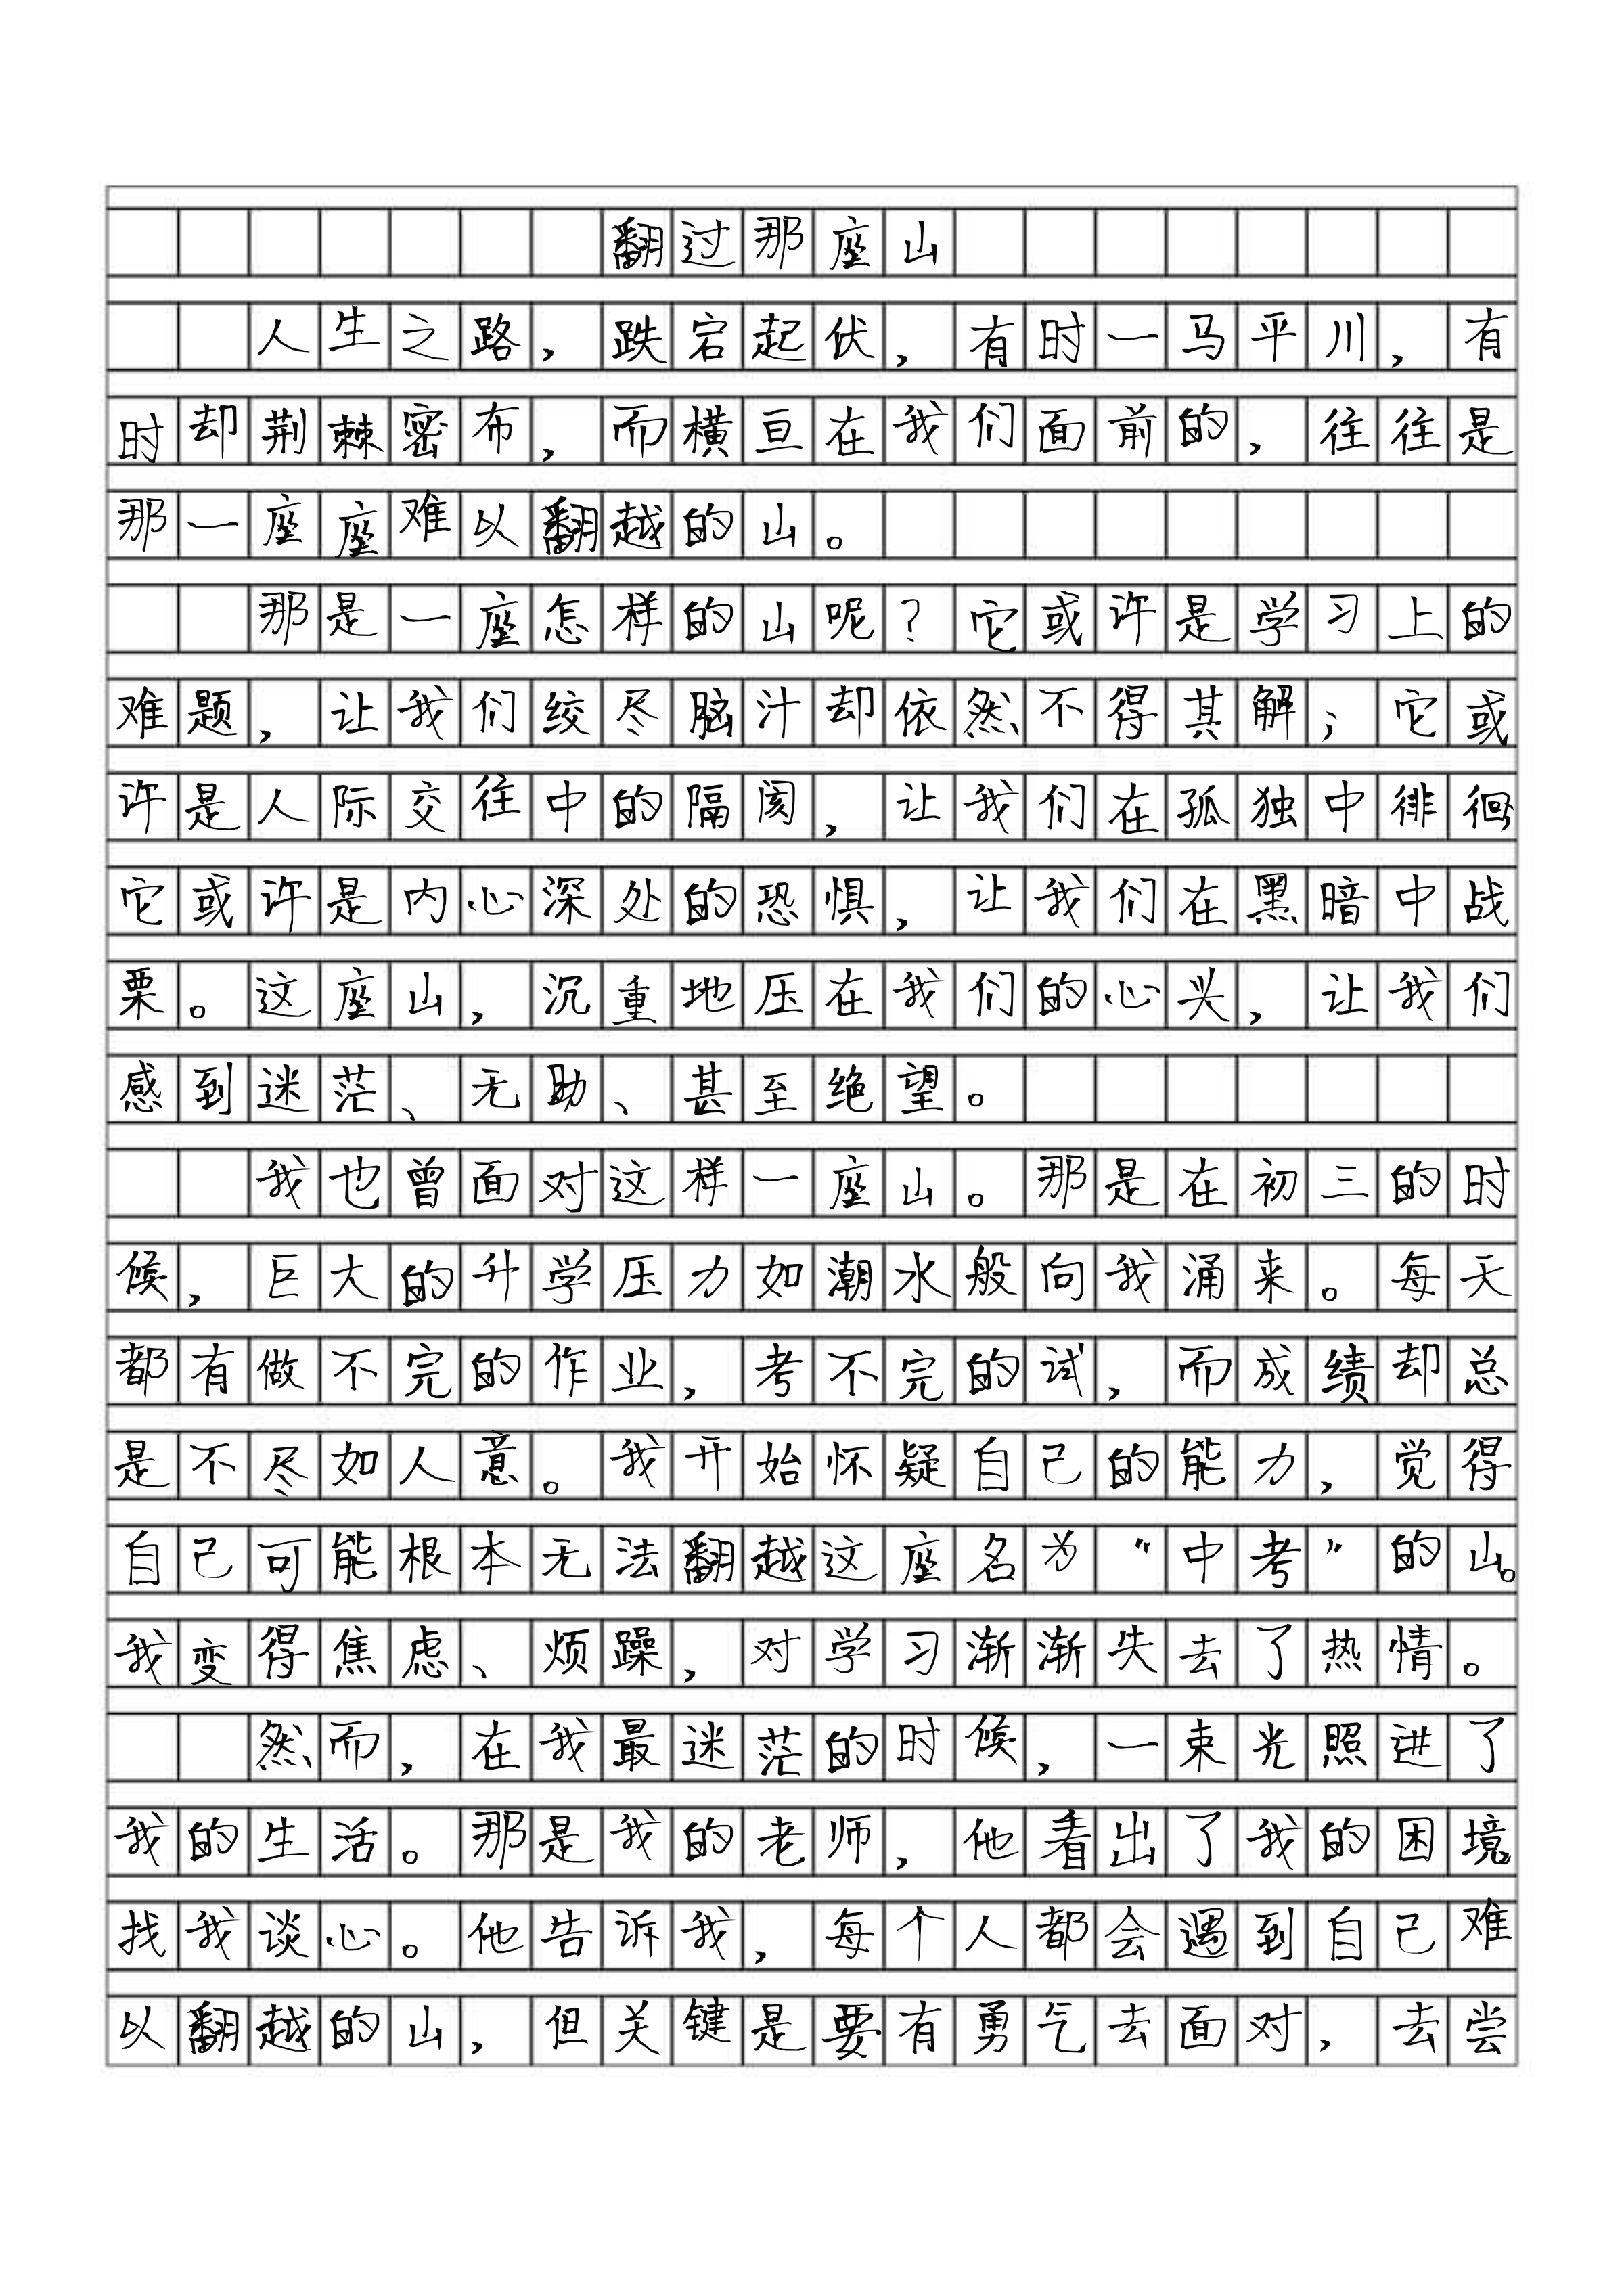 翻过那座山
人生之路，跌宕起伏，有时一马平川，有
时却荆棘密布，而横亘在我们面前的，往往是
那一座座难以翻越的山。
那是一座怎样的山呢？它或许是学习上的
难题，让我们绞尽脑汁却依然不得其解；它或
许是人际交往中的隔阂，让我们在孤独中徘徊，
它或许是内心深处的恐惧，让我们在黑暗中战
栗。这座山，沉重地压在我们的心头，让我们
感到迷茫、无助、甚至绝望。
我也曾面对这样一座山。那是在初三的时
候，巨大的升学压力如潮水般向我涌来。每天
都有做不完的作业，考不完的试，而成绩却总
是不尽如人意。我开始怀疑自己的能力，觉得
自己可能根本无法翻越这座名为“中考”的山。
我变得焦虑、烦躁，对学习渐渐失去了热情。
然而，在我最迷茫的时候，一束光照进了
我的生活。那是我的老师，他看出了我的困境，
找我谈心。他告诉我，每个人都会遇到自己难
以翻越的山，但关键是要有勇气去面对，去尝